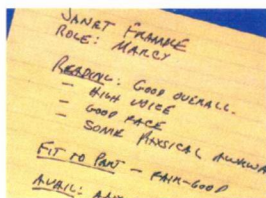 JANET
ROLE: MARCY
READING: GOOD OVERALL.
- HIGH VOICE
- GOOD PACE
- SOME PHYSICAL
FIT TO PART - FAIR-GOOD
AVAIL: